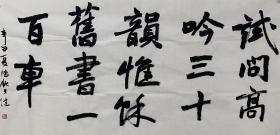 試問高
吟三十
韻惟餘
舊書一
百車
辛丑夏